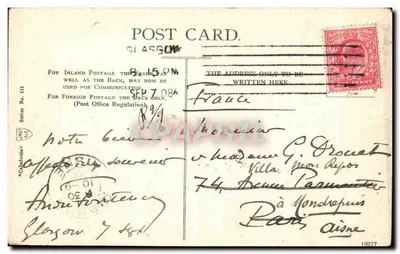 POST CARD.
GLASGOW
8.15 PM
SEP 7 08
FOR INLAND POSTAGE THIS
WELL AS THE BACK, MAY NOW BE
USED FOR COMMUNICATION.
FOR FOREIGN POSTAGE THE BACK ONLY.
(Post Office Regulation)
THE ADDRESS ONLY TO BE
WRITTEN HERE.
France
8/9
Monsieur
& Madame G. Drouet
Villa Mon Repos
74, Avenue Parmentier
à Mondrepuis
Paris
Aisne
Notre
affectueux souvenir
Glasgow 7 Sept.
"Caledonia" Series No. 111
10277